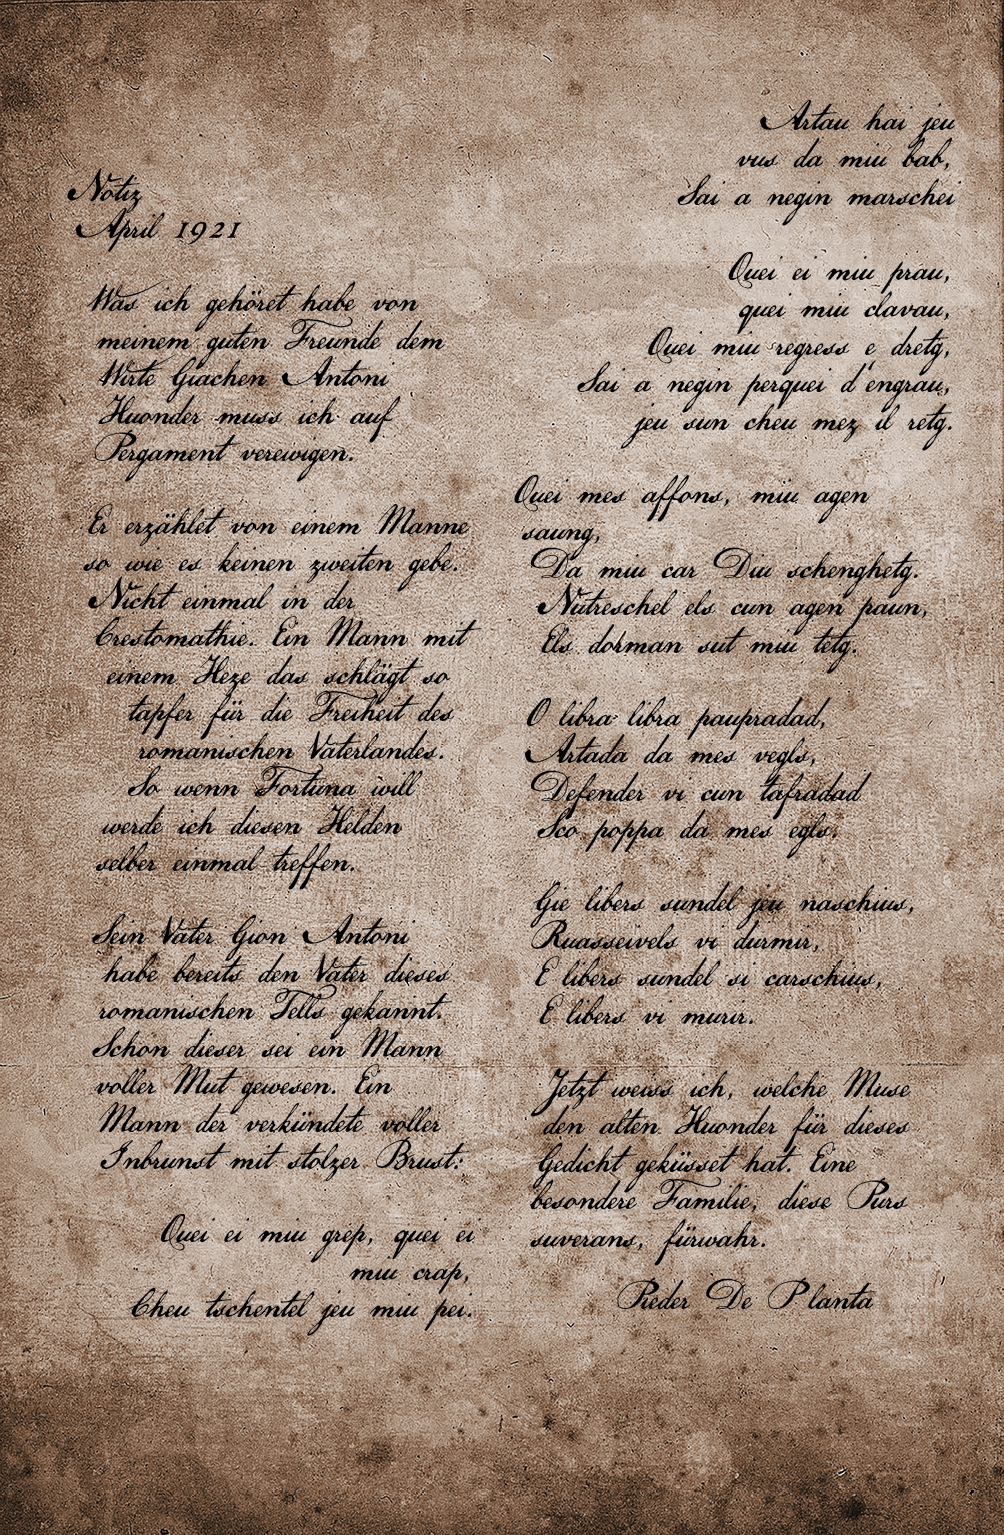 Notiz
April 1921
Was ich gehöret habe von
meinem guten Freunde dem
Wirte Giachen Antoni
Huonder muss ich auf
Pergament verewigen.
Er erzählet von einem Manne
so wie es keinen zweiten gebe.
Nicht einmal in der
Crestomathie. Ein Mann mit
einem Heze das schlägt so
tapfer für die Freiheit des
romanischen Vaterlandes.
So wenn Fortuna will
werde ich diesen Helden
selber einmal treffen.
Sein Vater Gion Antoni
habe bereits den Vater dieses
romanischen Tells gekannt.
Schon dieser sei ein Mann
voller Mut gewesen. Ein
Mann der verkündete voller
Inbrunst mit stolzer Brust:
Quei ei miu grep, quei ei
miu crap,
Cheu tschentel jeu miu pei.
Artau hai jeu
vus da miu bab,
Sai a negin marschei
Quei ei miu prau,
quei miu clavau,
Quei miu regress e dretg,
Sai a negin perquei d'engrau,
jeu sun cheu mez il retg.
Quei mes affons, miu agen
saung,
Da miu car Diu schenghetg.
Nutreschel els cun agen paun,
Els dorman sut miu tetg.
O libra libra paupradad,
Artada da mes vegls,
Defender vi cun tafradad
Sco poppa da mes egls.
Gie libers sundel jeu naschius,
Ruasseivels vi durmir,
E libers sundel si carschius,
E libers vi murir.
Jetzt weiss ich, welche Muse
den alten Huonder für dieses
Gedicht geküsset hat. Eine
besondere Familie, diese Purs
suverans, fürwahr.
Pieder De Planta